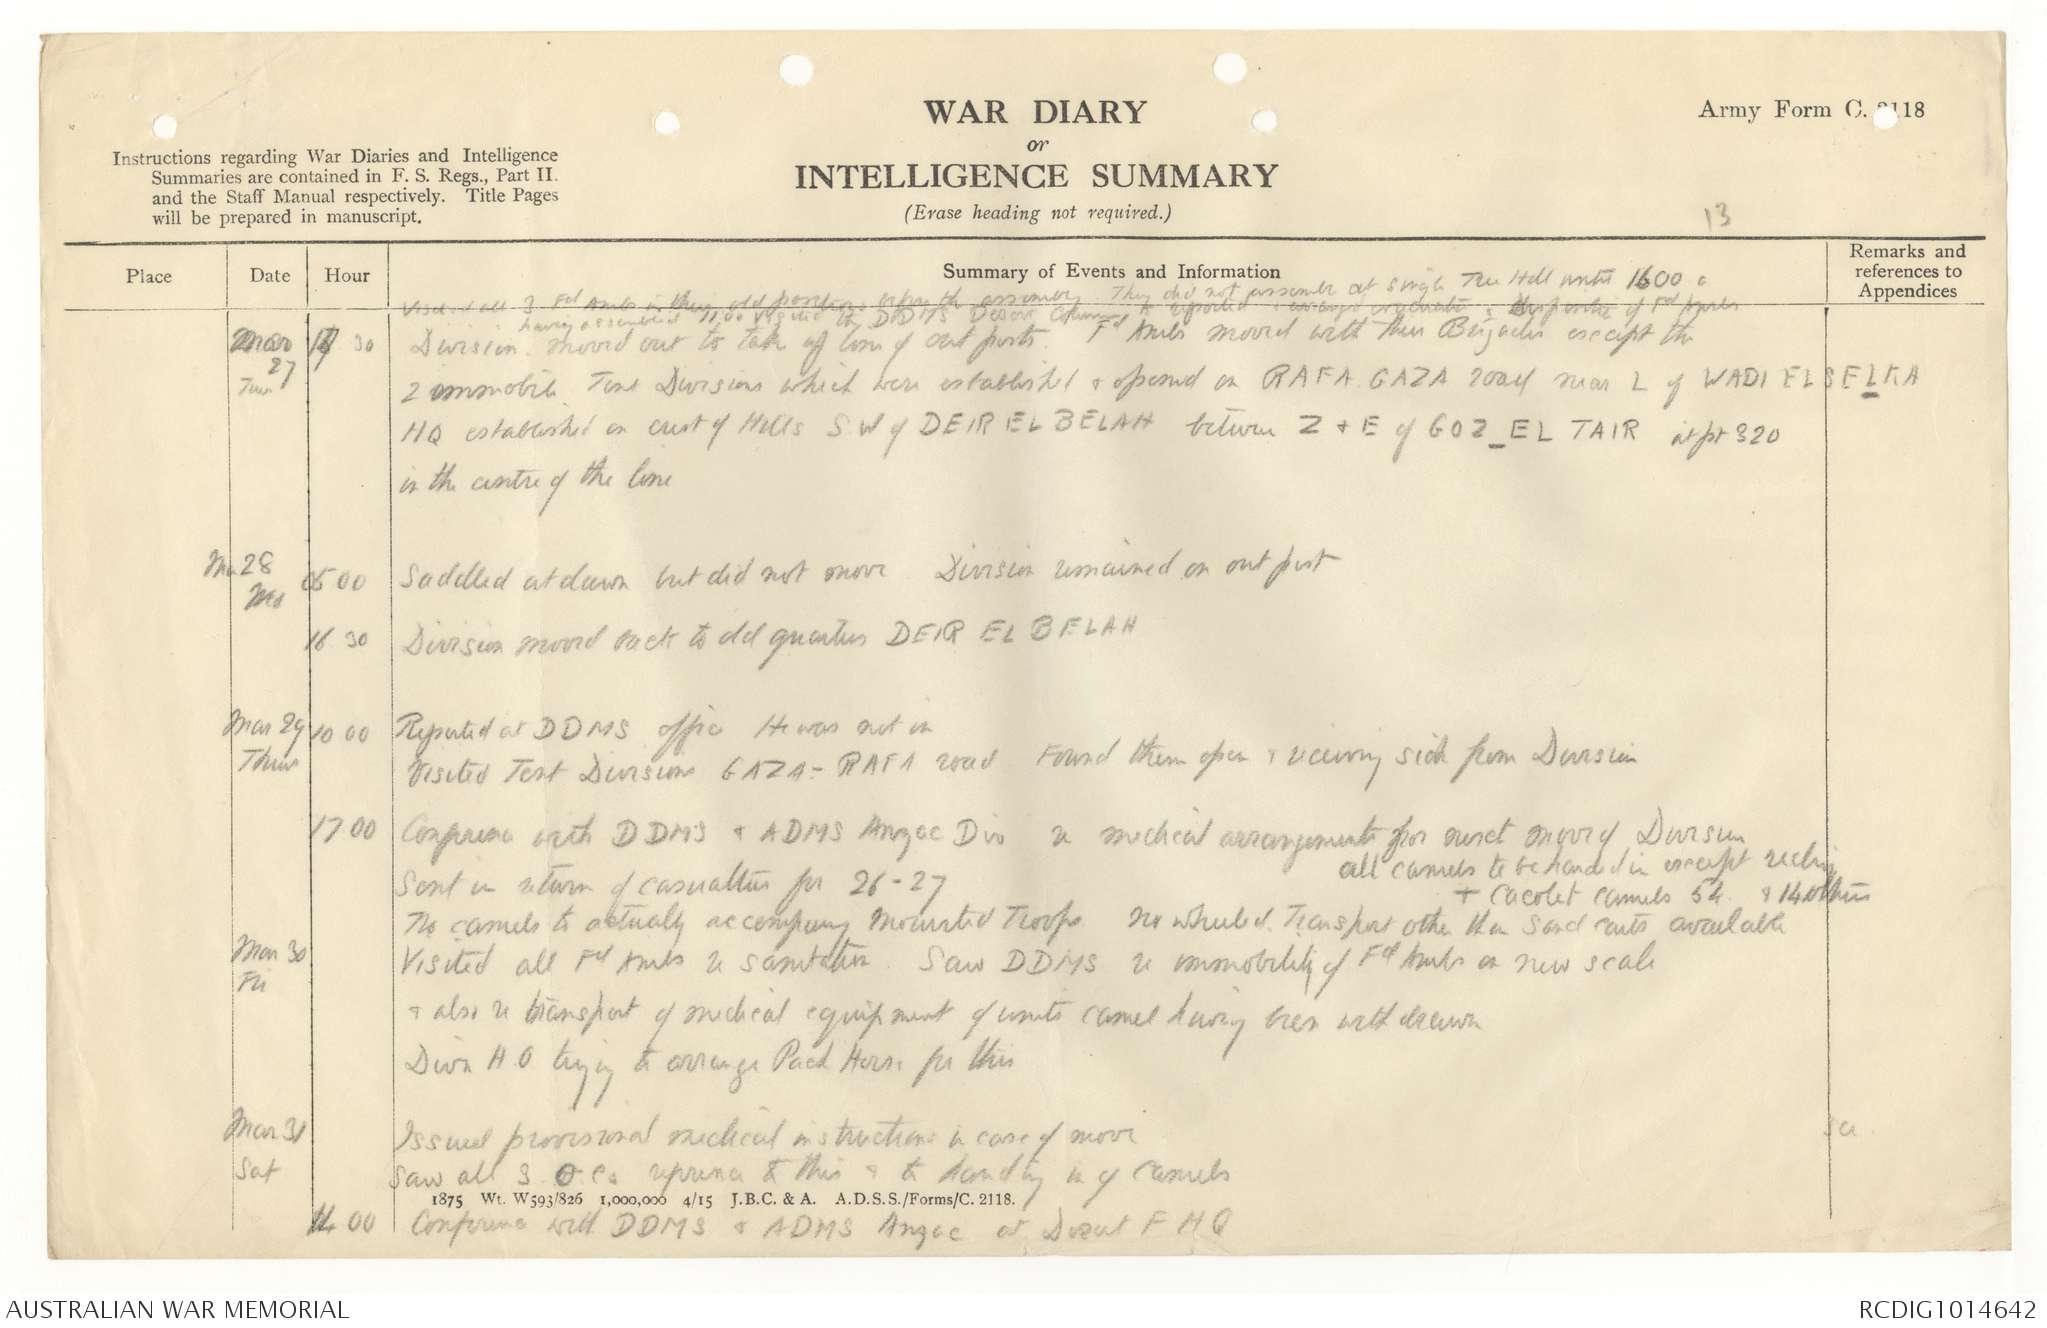 WAR DIARY
or
INTELLIGENCE SUMMARY
(Erase heading not required.)
Army Form C. 2118
Instructions regarding War Diaries and Intelligence
Summaries are contained in F. S. Regs., Part II.
and the Staff Manual respectively. Title Pages
will be prepared in manuscript.
13
Place Date Hour Summary of Events and Information Remarks and references to Appendices
Visited all 3 Fd Ambs in their old positions after the assembly. They did not assemble at Single Tree Hill until 1600
having assembled 1100 Visited by DDMS Desert Column & reported
Mar 27 Tues 30 Division moved out to take up line of out posts. Fd Ambs moved with their Brigades except the
2 immobile Tent Divisions which were established & opened on RAFA GAZA road near L of WADI EL SELKA
HQ established on crest of Hills SW of DEIR EL BELAH between Z & E of GOZ EL TAIR at pt 320
in the centre of the line
Mar 28 Wed 05 00 Saddled at dawn but did not move Division remained on out post
16 30 Division moved back to old quarters DEIR EL BELAH
Mar 29 Thurs 10 00 Reported at DDMS office He was not in
Visited Tent Divisions GAZA - RAFA road Found them open & receiving sick from Division
17 00 Conference with DDMS & ADMS Anzac Div re medical arrangements for next move of Division
all camels to be handed in except
Sent in return of casualties for 26-27
+ cacolet camels 54 & 14 others
No camels to actually accompany Mounted Troops No wheeled Transport other than Sand carts available
Mar 30 Fri Visited all Fd Ambs re sanitation. Saw DDMS re immobility of Fd Ambs on new scale
& also re transport of medical equipment of units camel having been withdrawn
Divn HQ trying to arrange Pack Horse for this
Mar 31 Sat Issued provisional medical instructions in case of move
Saw all 3 O.Cs reference to this & to handing in of camels
1875 Wt. W593/826 1,000,000 4/15 J.B.C. & A. A.D.S.S./Forms/C. 2118.
14 00 Conference with DDMS & ADMS Anzac at Desert F HQ
AUSTRALIAN WAR MEMORIAL
RCDIG1014642